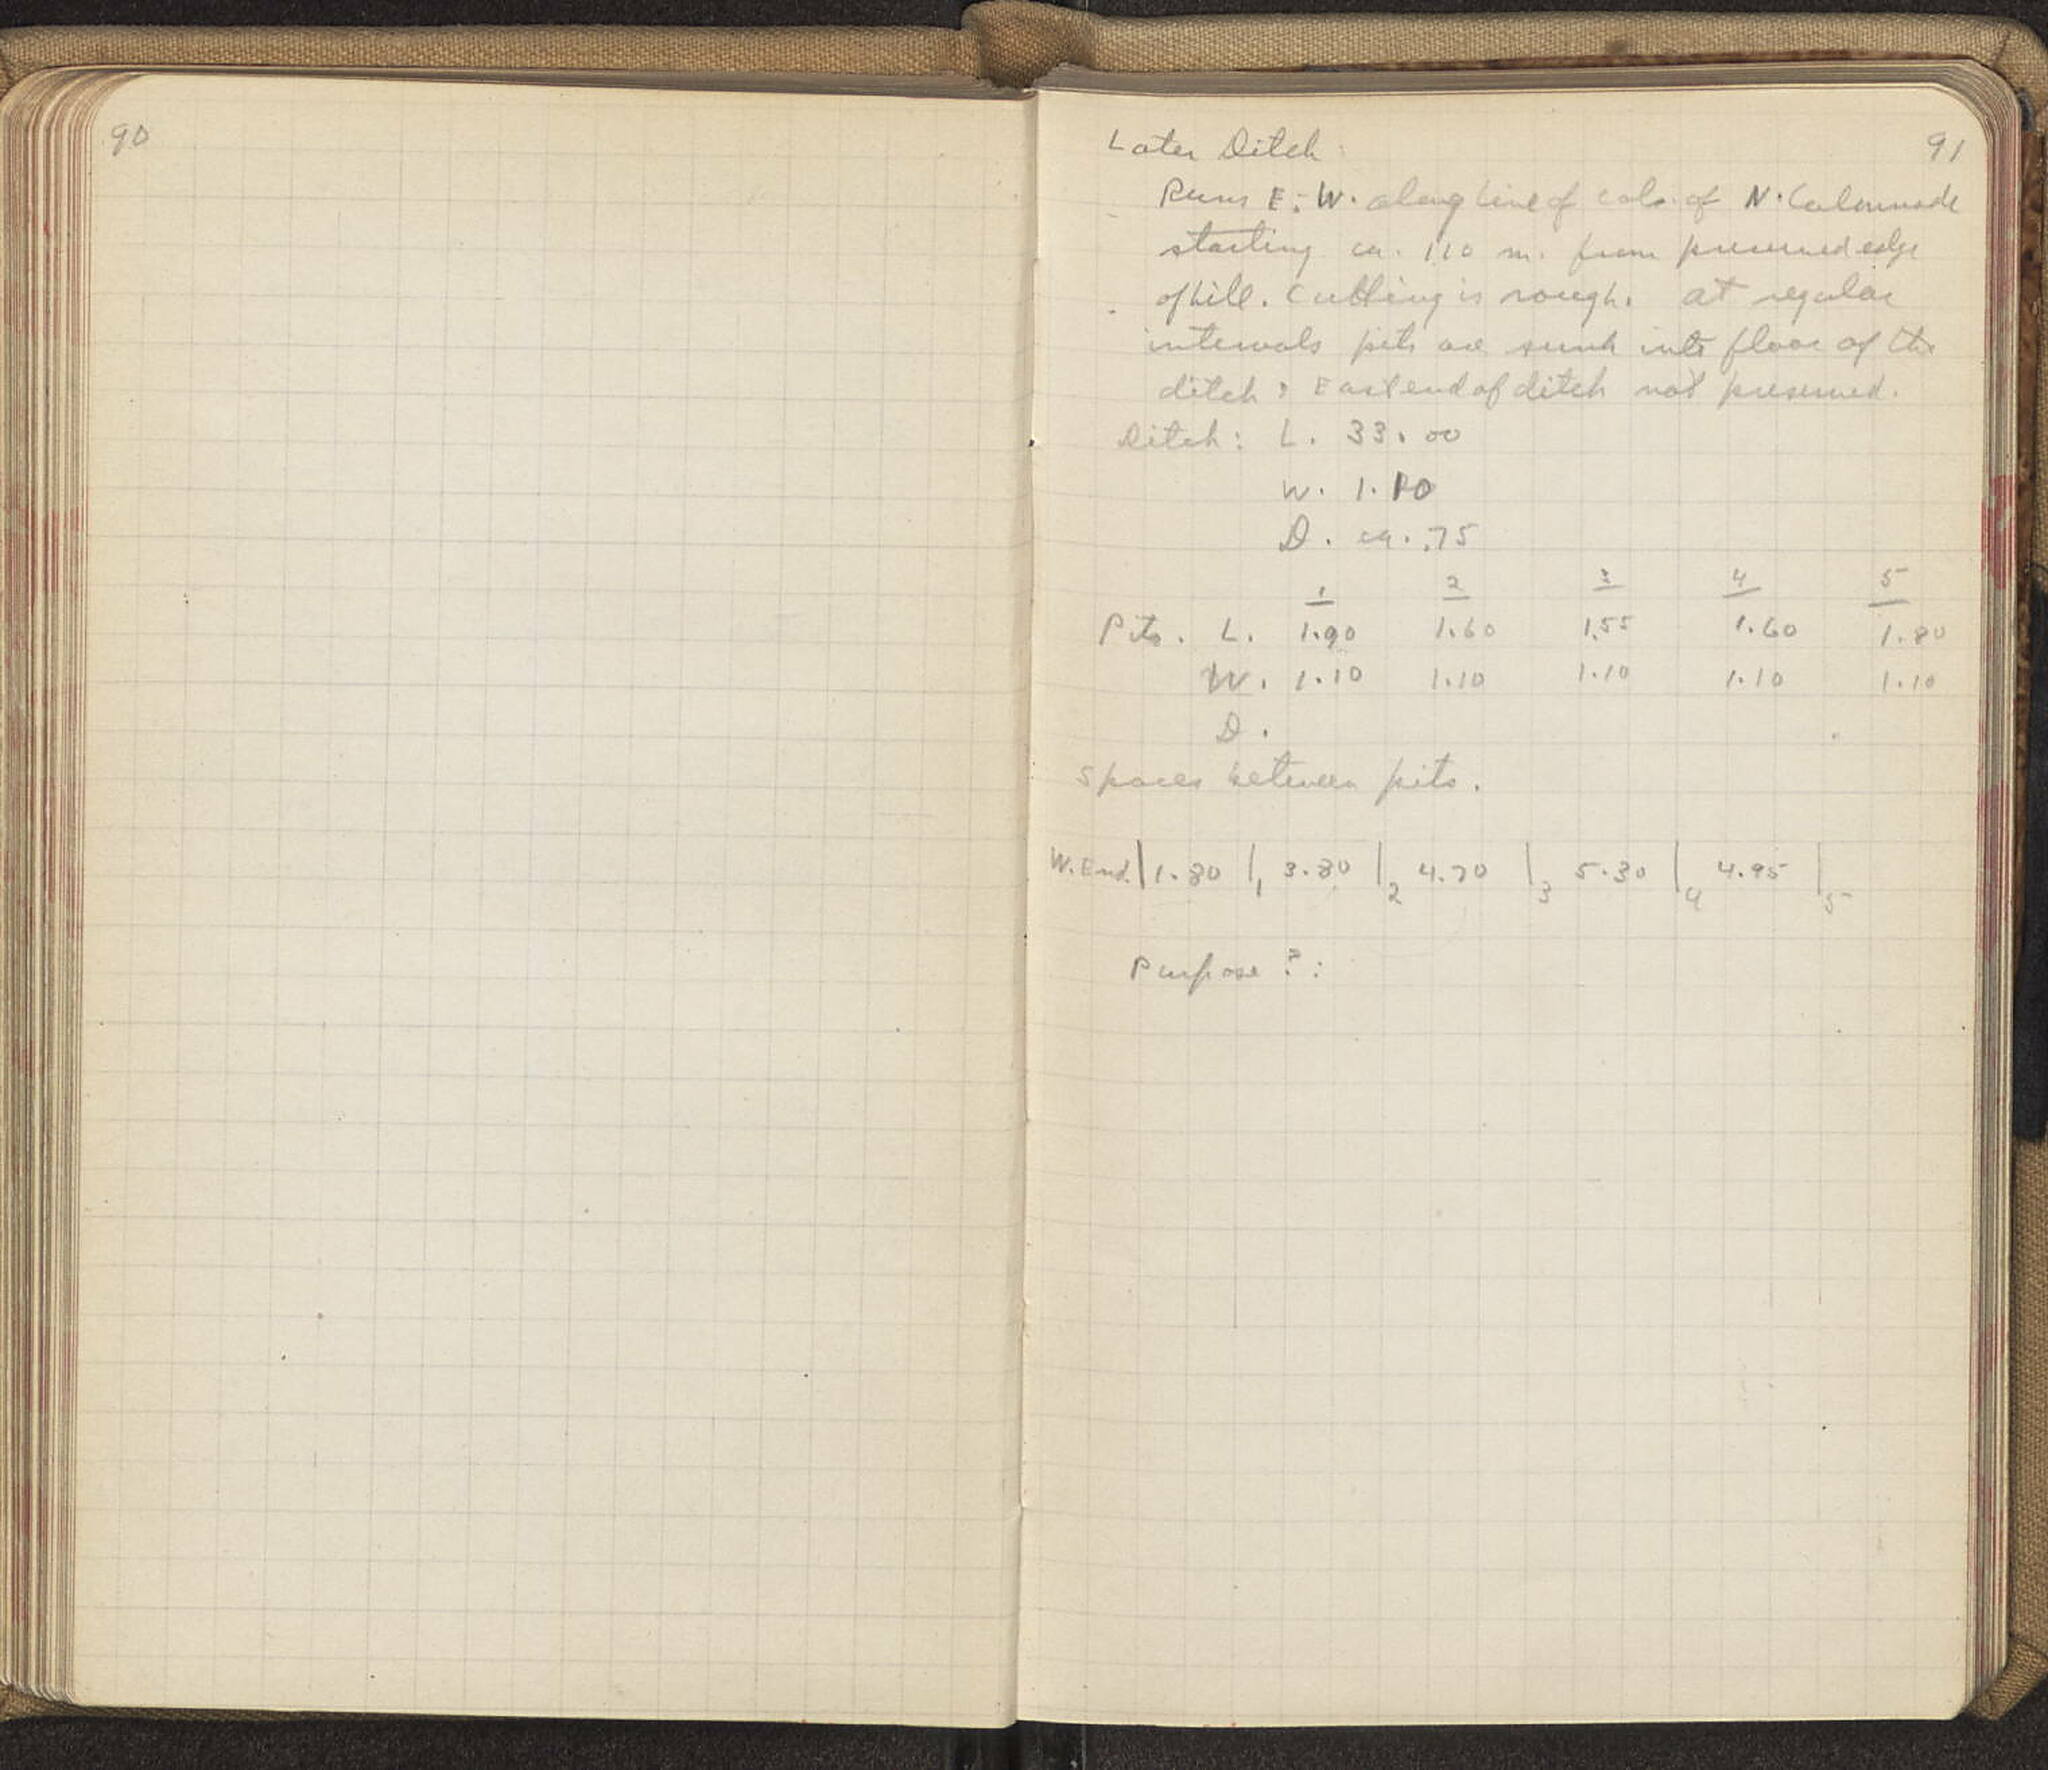 90
91
Later Ditch
Runs E-W. along line of cols. of N. Colonnade
starting ca. 110 m. from preserved edge
of hill. Cutting is rough. At regular
intervals pits are sunk into floor of the
ditch; East end of ditch not preserved.
Ditch: L. 33.00
W. 1.10
D. ca. .75
1 2 3 4 5
Pits. L. 1.90 1.60 1.55 1.60 1.80
W. 1.10 1.10 1.10 1.10 1.10
D.
Spaces between pits.
W. End. | 1.80 |1 3.80 |2 4.70 |3 5.30 |4 4.95 |5
Purpose?: